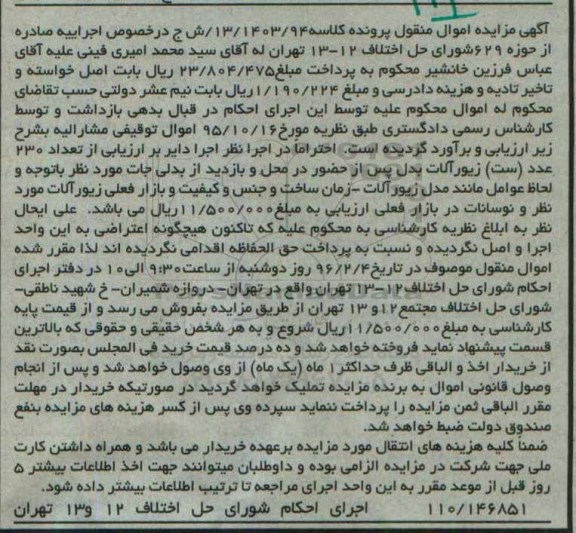 آگهی مزایده اموال منقول پرونده کلاسه ۱۳/۱۴۰۳/۹۴/ش ج درخصوص اجراییه صادره
از حوزه ۶۲۹شورای حل اختلاف ۱۲-۱۳ تهران له آقای سید محمد امیری فینی علیه آقای
عباس فرزین خانشیر محکوم به پرداخت مبلغ۲۳/۸۰۴/۴۷۵ ریال بابت اصل خواسته و
تاخیر تادیه و هزینه دادرسی و مبلغ ۱/۱۹۰/۲۲۴ریال بابت نیم عشر دولتی حسب تقاضای
محکوم له اموال محکوم علیه توسط این اجرای احکام در قبال بدهی بازداشت و توسط
کارشناس رسمی دادگستری طبق نظریه مورخ۹۵/۱۰/۱۶ اموال توقیفی مشارالیه بشرح
زیر ارزیابی و برآورد گردیده است. احتراما در اجرا نظر اجرا دایر بر ارزیابی از تعداد ۲۳۰
عدد (ست) زیورآلات بدل پس از حضور در محل و بازدید از بدلی جات مورد نظر باتوجه و
لحاظ عوامل مانند مدل زیورآلات -زمان ساخت و جنس و کیفیت و بازار فعلی زیورآلات مورد
نظر و نوسانات در بازار فعلی ارزیابی به مبلغ۱۱/۵۰۰/۰۰۰ریال می باشد. علی ایحال
نظر به ابلاغ نظریه کارشناسی به محکوم علیه که تاکنون هیچگونه اعتراضی به این واحد
اجرا و اصل نگردیده و نسبت به پرداخت حق الحفاظه اقدامی نگردیده اند لذا مقرر شده
اموال منقول موصوف در تاریخ۹۶/۲/۴ روز دوشنبه از ساعت۹:۳۰ الی۱۰ در دفتر اجرای
احکام شورای حل اختلاف۱۲-۱۳ تهران واقع در تهران- دروازه شمیران- خ شهید ناطقی-
شورای حل اختلاف مجتمع۱۲و ۱۳ تهران از طریق مزایده بفروش می رسد و از قیمت پایه
کارشناسی به مبلغ۱۱/۵۰۰/۰۰۰ریال شروع و به هر شخص حقیقی و حقوقی که بالاترین
قسمت پیشنهاد نماید فروخته خواهد شد و ده درصد قیمت خرید فی المجلس بصورت نقد
از خریدار اخذ و الباقی ظرف حداکثر۱ ماه (یک ماه) از وی وصول خواهد شد و پس از انجام
وصول قانونی اموال به برنده مزایده تملیک خواهد گردید در صورتیکه خریدار در مهلت
مقرر الباقی ثمن مزایده را پرداخت ننماید سپرده وی پس از کسر هزینه های مزایده بنفع
صندوق دولت ضبط خواهد شد.
ضمنا کلیه هزینه های انتقال مورد مزایده برعهده خریدار می باشد و همراه داشتن کارت
ملی جهت شرکت در مزایده الزامی بوده و داوطلبان میتوانند جهت اخذ اطلاعات بیشتر ۵
روز قبل از موعد مقرر به این واحد اجرای مراجعه تا ترتیب اطلاعات بیشتر داده شود.
۱۱۰/۱۴۶۸۵۱ اجرای احکام شورای حل اختلاف ۱۲ و۱۳ تهران